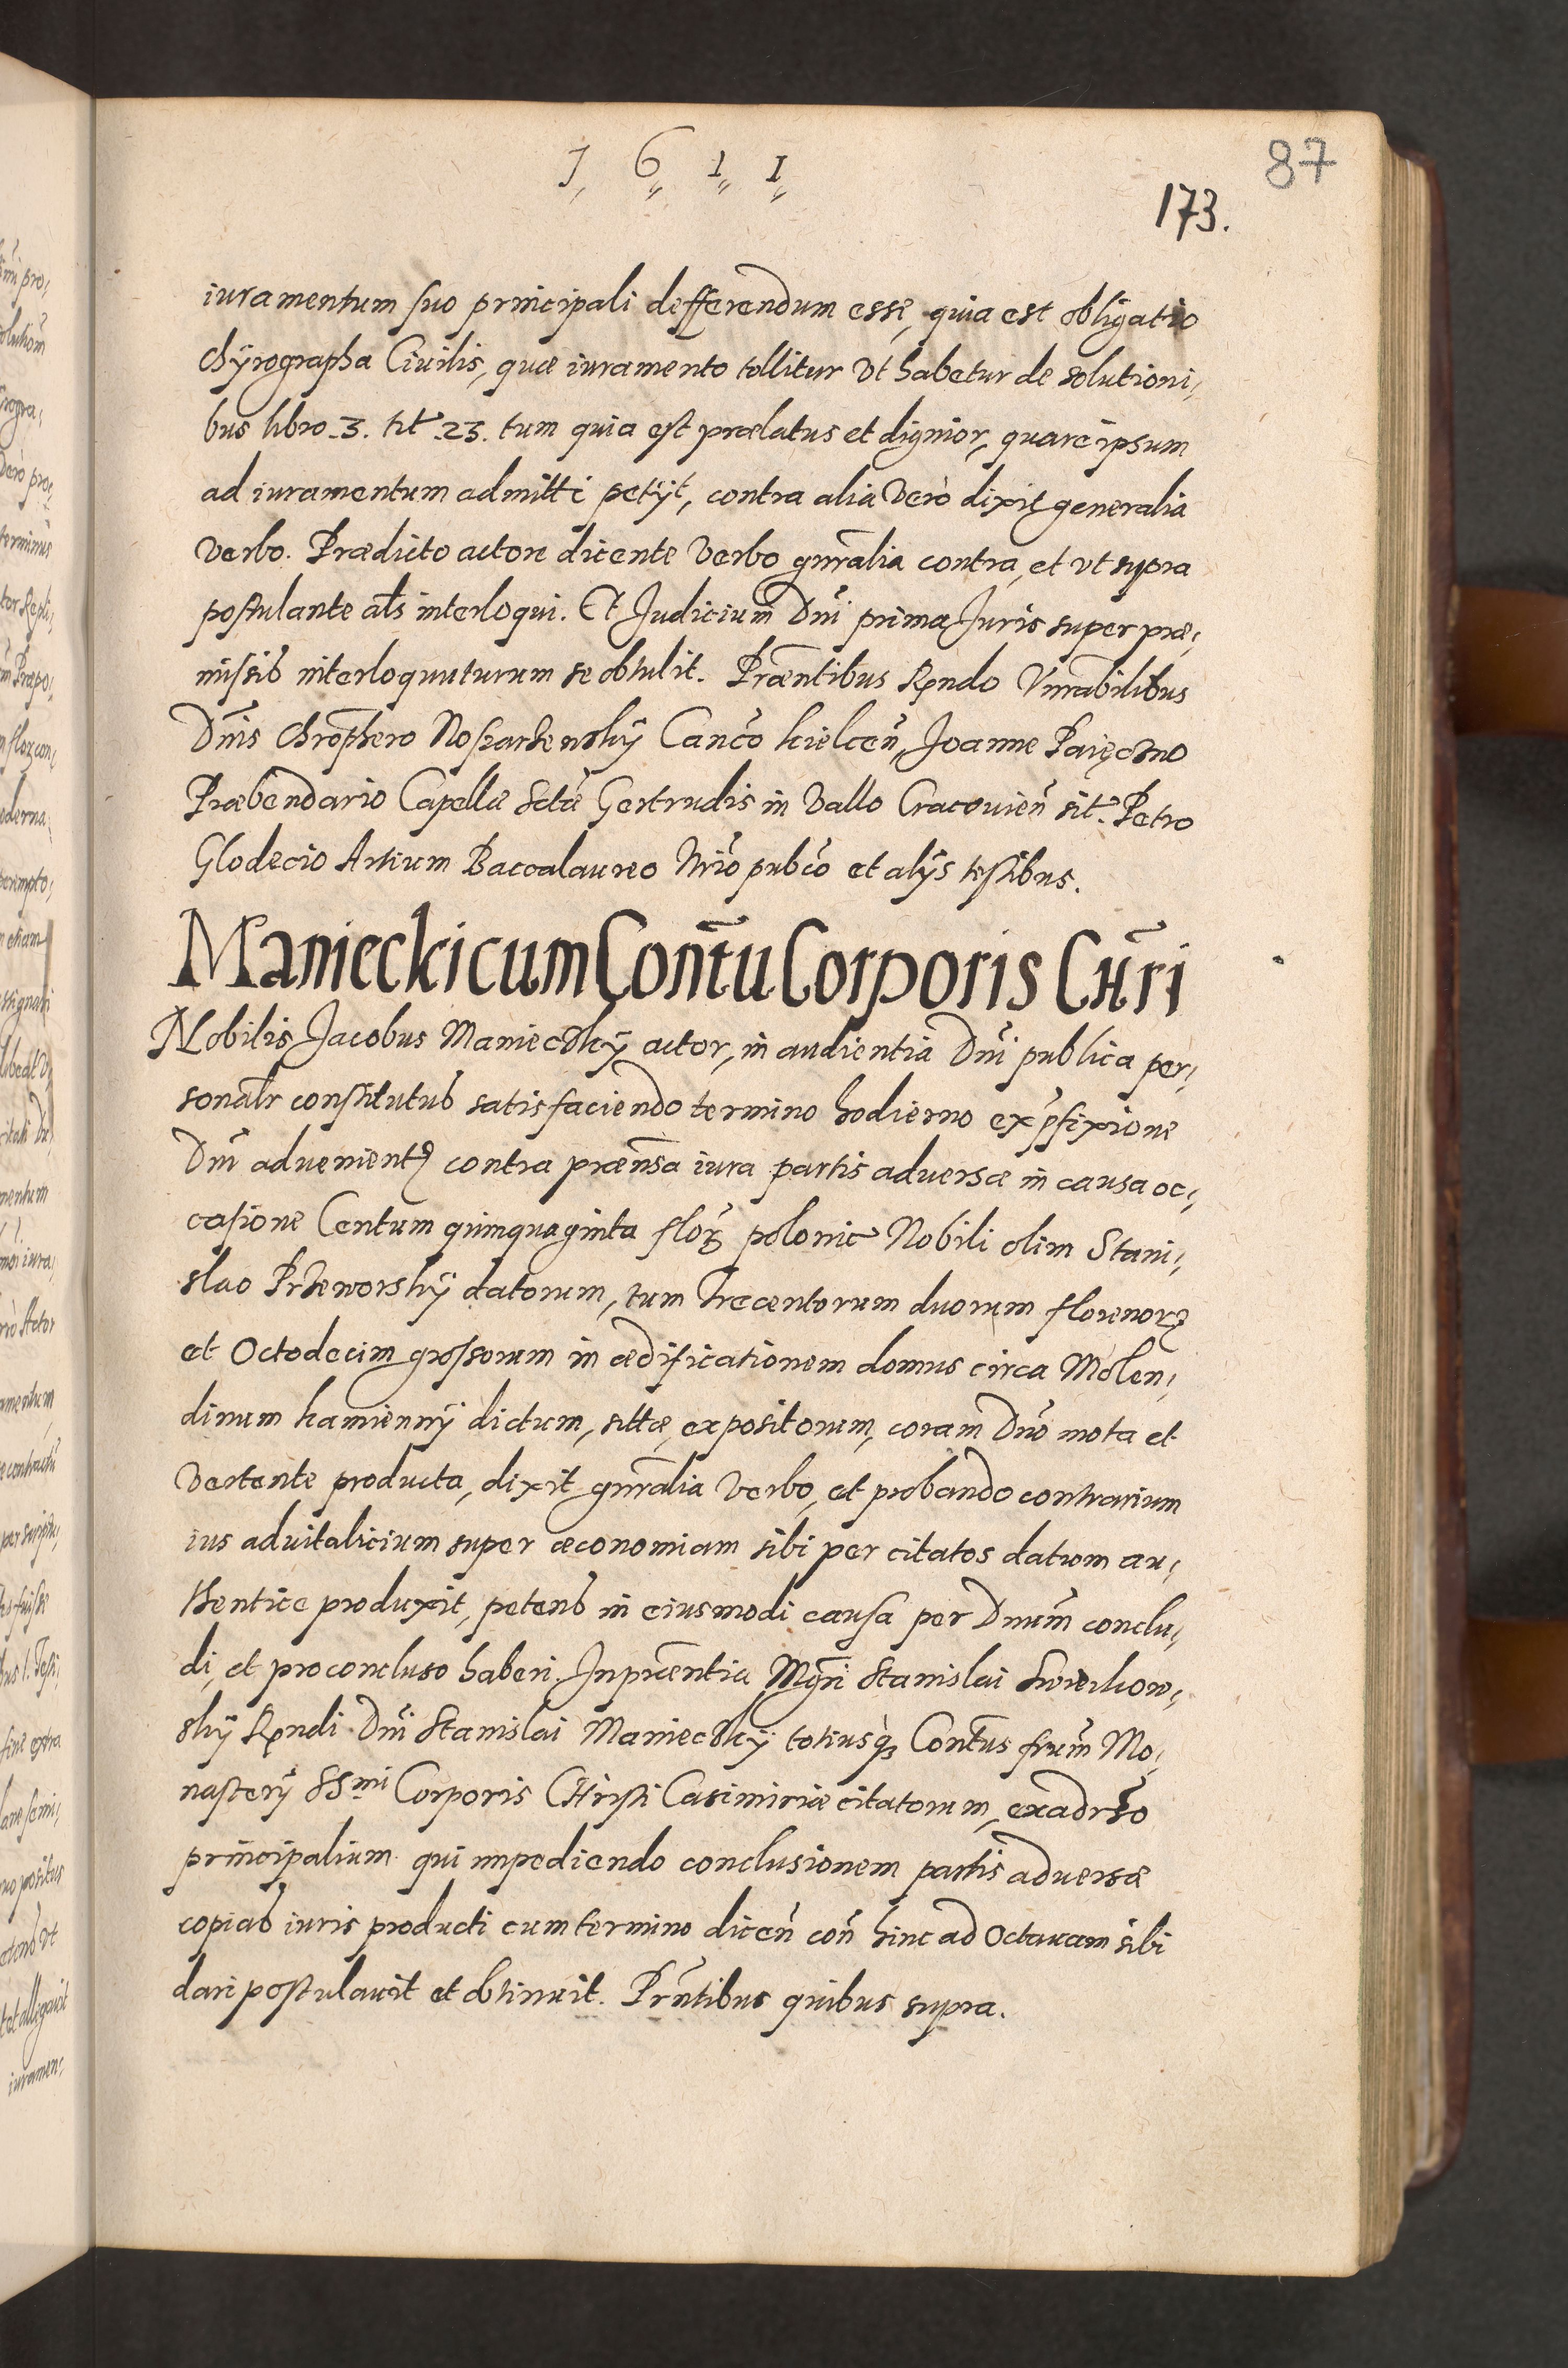 1611
87
173.
iuramentum suo principali defferendum esse, quia est obligatio
chÿrographa Ciuilis, quæ iuramento tollitur vt habetur de solutioni,
bus libro .3. tit .23. tum quia est prælatus et dignior, quare ipsum
ad iuramentum admitti petÿt, contra alia verò dixit generalia
verbo. Prædicto actore dicente verbo gnralia contra, et vt supra
postulante als interloqui. Et Judicium Dni prima Juris super præ,
missis interloquuturum se obtulit. Præntibus Rndo Vnrabilibus
Dnis Chrophero Canco kielcen, Joanne
Præbendario Capellæ Sctæ Gertrudis in Vallo Cracouien sit. Petro
Glodecio Artium Baccalaureo Nrio pubco et alÿs testibus.
Maniecki cum Contu Corporis CHri
Nobilis Jacobus Manieckÿ actor, in audientia Dni publica per,
sonalr constitutus satisfaciendo termino hodierno ex pfixione
Dni aduenient contra præensa iura partis aduersæ in causa oc,
casione Centum quinquaginta flor polonic Nobili olim Stani,
slao Przeworskÿ datorum, tum Trecentorum duorum florenor
et Octodecim grossorum in ædificationem domus circa Molen,
dinum kamiennÿ dictum, sittæ, expositorum, coram Dno mota et
vertente producta, dixit gnralia verbo, et probando contrarium
ius aduitalicium super æconomiam sibi per citatos datum au,
thentice produxit, petens in eiusmodi causa per Dnum conclu,
di, et pro concluso haberi. In præntia Mgri Stanislai
skÿ Rndi Dni Stanislai Manieckÿ totiusq Contus frum Mo,
nasterÿ SSmi Corporis CHristi Casimiriæ citatorum, ex adrso
principalium qui impediendo conclusionem partis aduersæ
copias iuris producti cum termino dicen con hinc ad Octauam sibi
dari postulauit et obtinuit. Prntibus quibus supra.